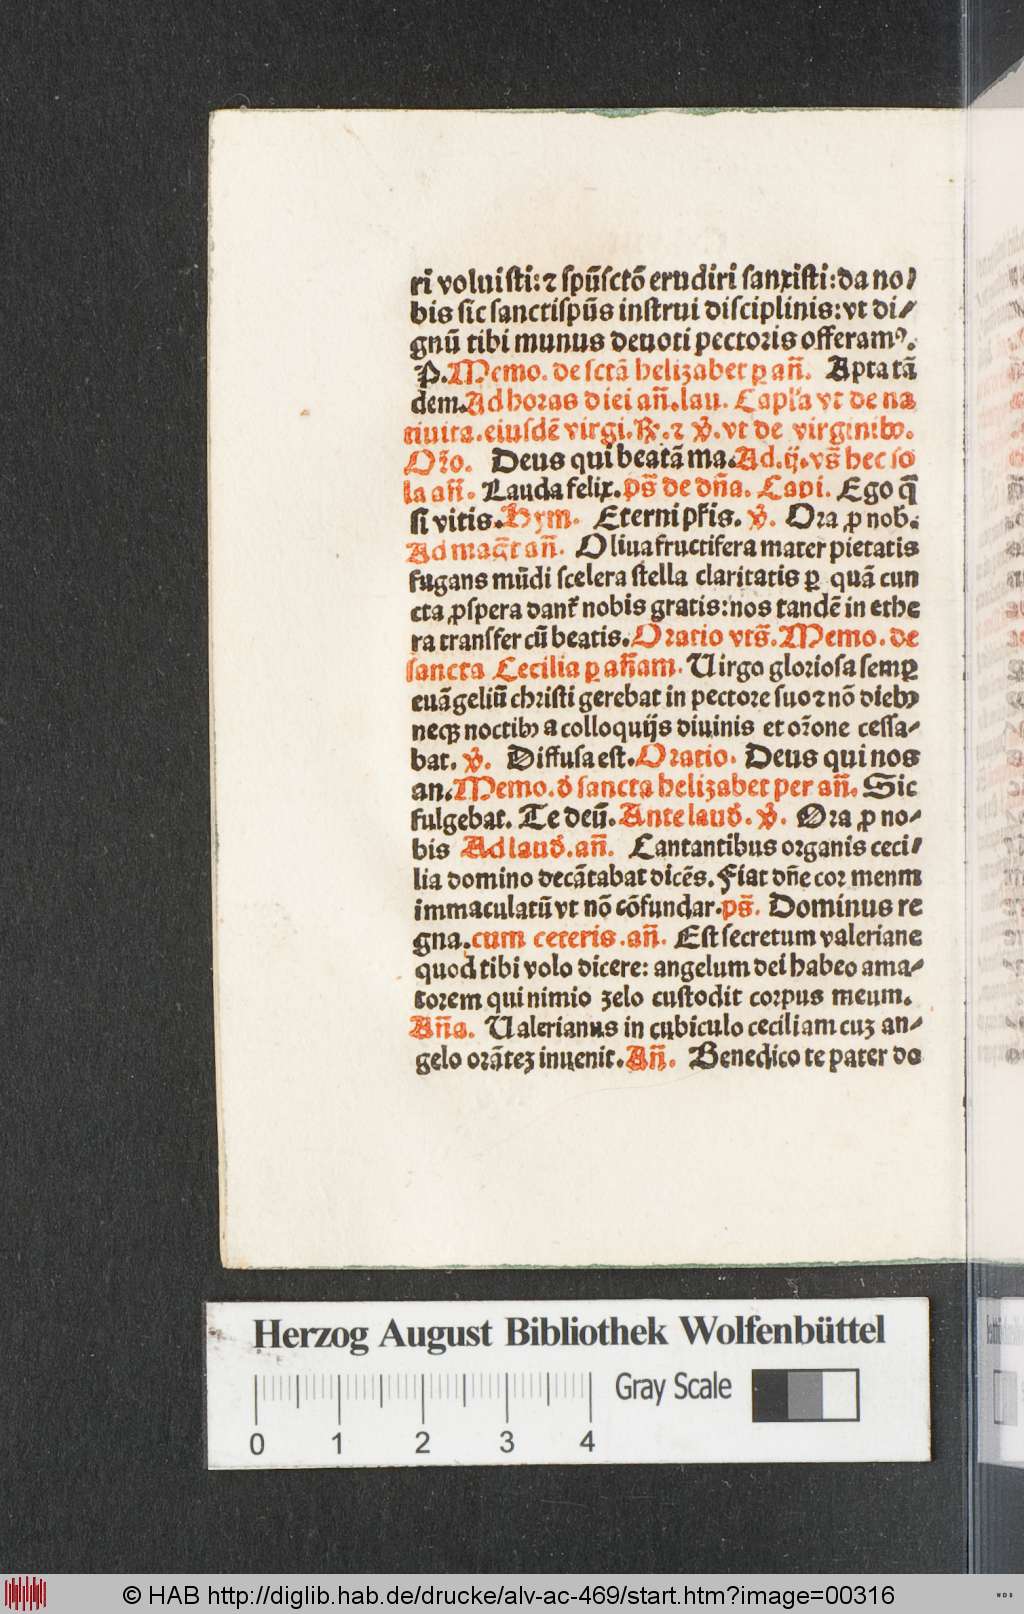 ri voluisti: ⁊ spūsctō erudiri sanxisti: da no⸗
bis sic sanctispūs instrui disciplinis: vt di⸗
gnū tibi munus deuoti pectoris offeramꝰ.
P. Memo. de sctā helizabet ꝑ añ. Apta tā
dem. Ad horas diei añ. lau. Capľa vt de na
tiuita. eiusdē virgi. ℟. ⁊ ℣. vt de virginibꝫ.
Oꝛ̄o. Deus qui beatā ma. Ad. ij. vs̄ hec so
la añ. Lauda felix. ps̄ de dña. Capi. Ego q̄
si vitis. Hym. Eterni pr̄is. ℣. Ora ꝓ nob.
Ad mag̅t añ. Oliua fructifera mater pietatis
fugans mūdi scelera stella claritatis ꝑ quā cun
cta ꝓspera dant᷑ nobis gratis: nos tandē in ethe
ra transfer cū beatis. Oratio vts̄. Memo. de
sancta Cecilia ꝑ añam. Uirgo gloriosa semꝑ
euāgeliū christi gerebat in pectore suo ⁊ nō diebꝫ
neqꝫ noctibꝫ a colloquijs diuinis et oꝛ̄one cessa⸗
bat. ℣. Diffusa est. Oratio. Deus qui nos
an. Memo. đ sancta helizabet per añ. Sic
fulgebat. Te deū. Ante laud̄. ℣. Ora ꝓ no⸗
bis Ad laud̄. añ. Cantantibus organis ceci⸗
lia domino decātabat dicēs. Fiat dñe cor menm
immaculatū vt nō cōfundar. ps̄. Dominus re
gna. cum ceteris. añ. Est secretum valeriane
quod tibi volo dicere: angelum dei habeo ama⸗
torem qui nimio zelo custodit corpus meum.
Aña. Ualerianus in cubiculo ceciliam cuꝫ an⸗
gelo orāteꝫ inuenit. Añ. Benedico te pater do
Herzog August Bibliothek Wolfenbüttel
Gray Scale
0 1 2 3 4
© HAB http://diglib.hab.de/drucke/alv-ac-469/start.htm?image=00316